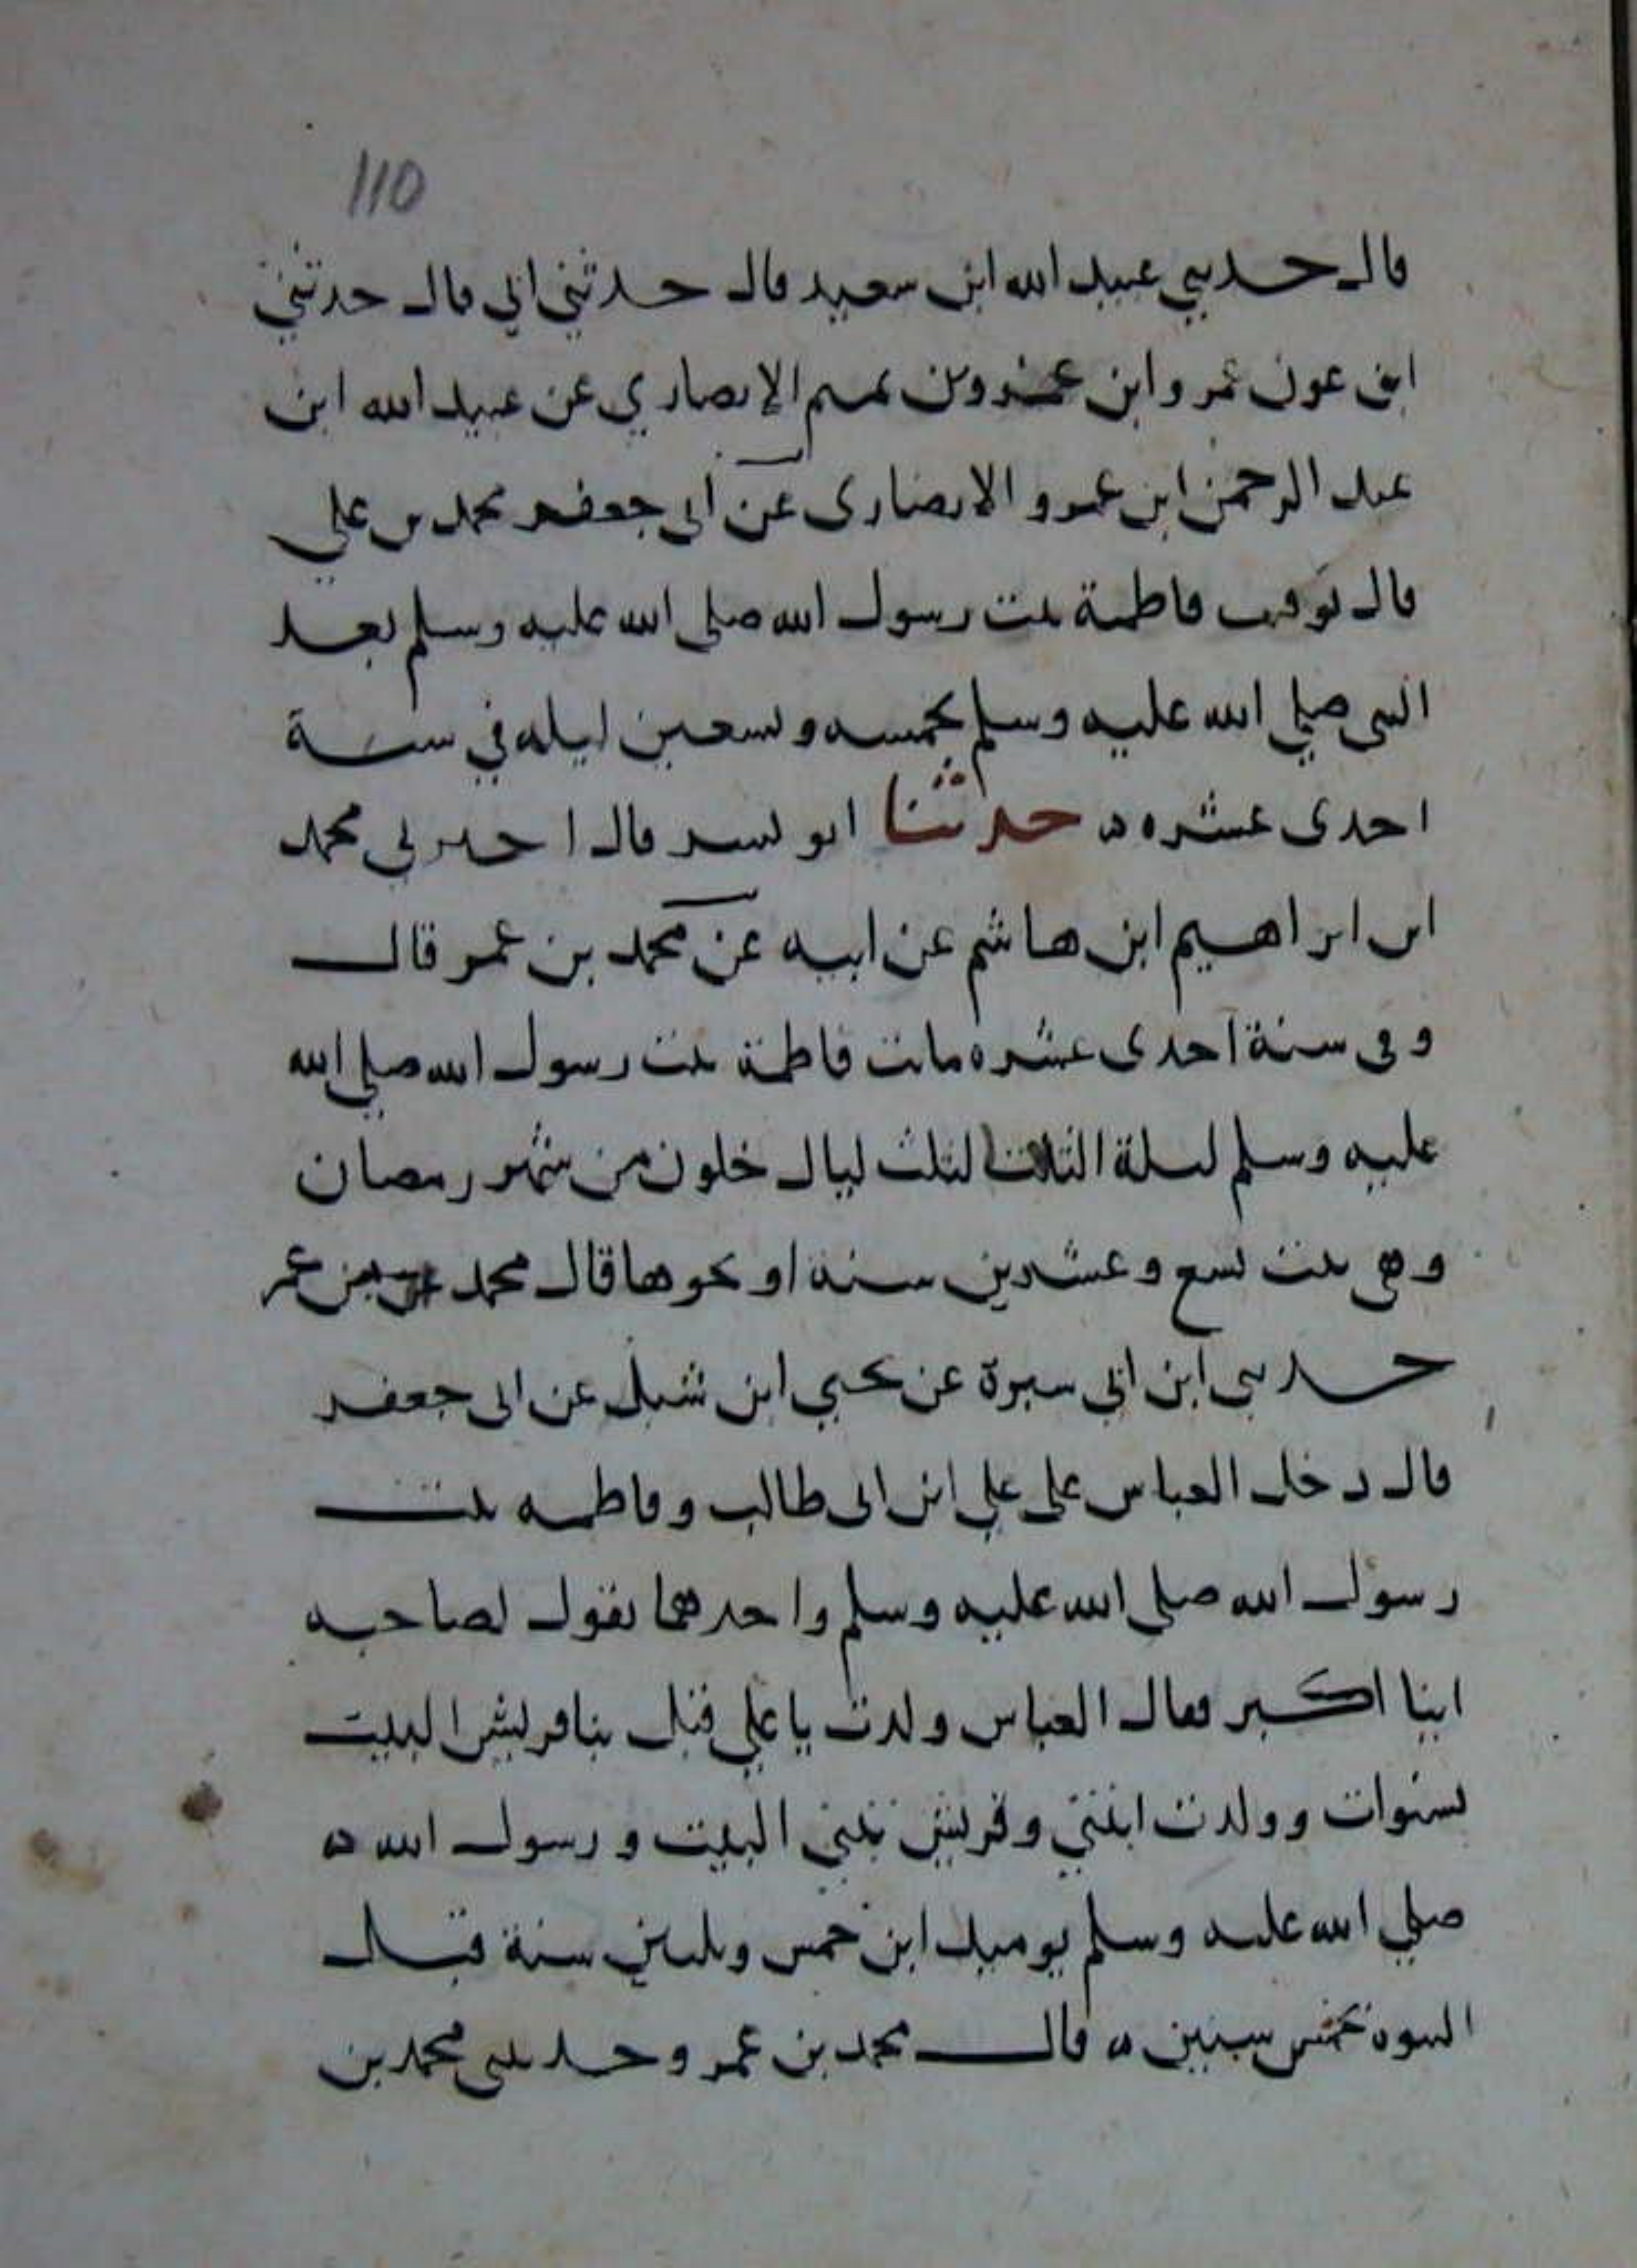 110
قال حدثني عبيد الله ابن سعيد قال حدثني ابي قال حدثني
ابن عون عمرو ابن عمرو بن تميم الانصاري عن عبيد الله ابن
عبد الرحمن ابن عمرو الانصاري عن ابي جعفر محمد بن علي
قال توفيت فاطمة بنت رسول الله صلى الله عليه وسلم بعد
النبي صلي الله عليه وسلم بخمسه وتسعين ليله في سنة
احدى عشره ه حدثنا ابو بشر قال اخبرني محمد
ابن ابراهيم ابن هاشم عن ابيه عن محمد بن عمر قال
وفي سنة احدى عشره ماتت فاطمة بنت رسول الله صلي الله
عليه وسلم ليلة الثلاثا لثلث ليال خلون من شهر رمضان
وهي بنت تسع وعشرين سنة او نحوها قال محمد بن عمر
حدثني ابن ابي سبرة عن يحيي ابن شبل عن ابي جعفر
قال دخل العباس على علي ابن ابي طالب وفاطمه بنت
رسول الله صلى الله عليه وسلم واحدهما يقول لصاحبه
اينا اكبر فقال العباس ولدت يا علي قبل بنا قريش البيت
بسنوات وولدت ابنتي وقريش تبني البيت ورسول الله ه
صلي الله عليه وسلم يوميذ ابن خمس وثلثين سنة قبل
النبوه بخمس سنين ه قال محمد بن عمر وحدثني محمد بن